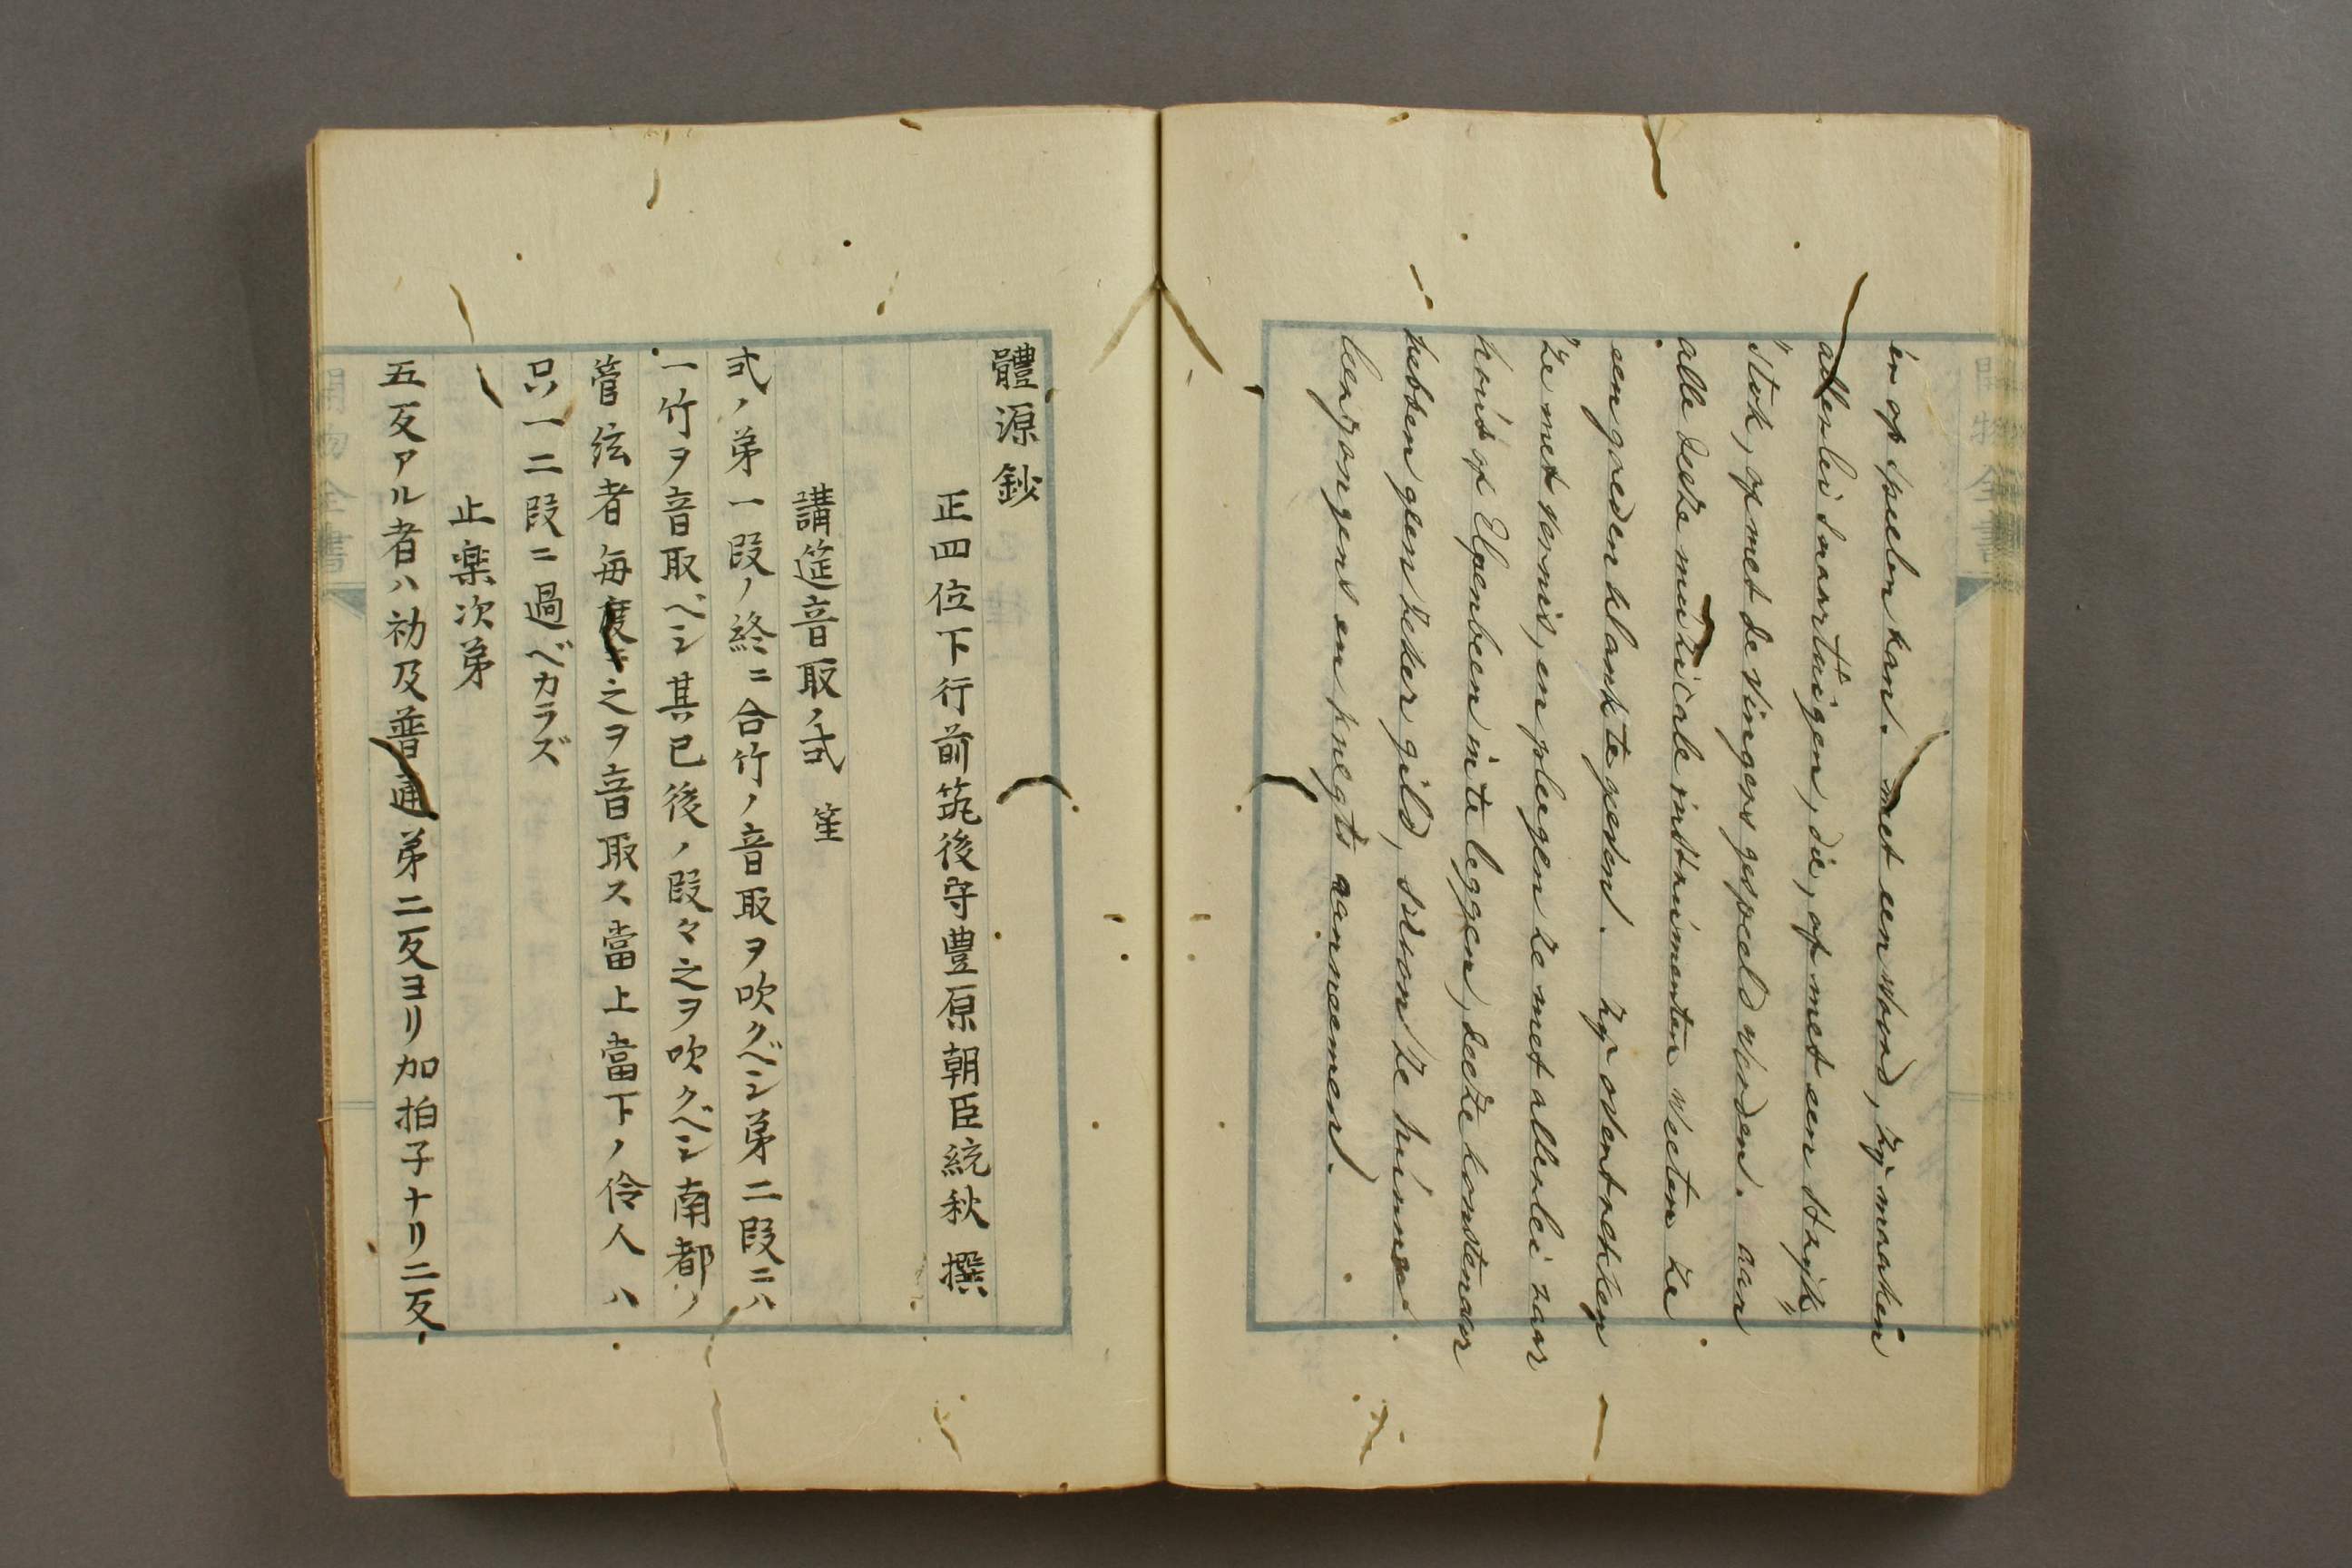 er op speelen kan. met een woord, zÿ maaken
allerlei snaartuigen, die, of met een strÿk„
„stok, of met de vingers gespeeld worden. aan
alle deeze muzicale instrumenten weeten ze
een goeden klank te geeven. zÿ overtrekken
ze met vernis, en pleegen ze met allerlei raar
hout of Elpenbeen in te leggen, deeze konstenaar
hebben geen zeker gild, schoon ze hunne
leerjongens en knegts aanneemen.
體源鈔
正四位下行前筑後守豊原朝臣統秋 撰
講筵音取ノ式 笙
式ノ第一段ノ終ニ合竹ノ音取ヲ吹クベシ第二段ニハ
一竹ヲ音取ベシ其已後ノ段々之ヲ吹クベシ南都ノ
管絃者毎度ニ之ヲ音取ス當上當下ノ伶人ハ
只一二段ニ過ベカラズ
止楽次第
五反アル者ハ初及普通第二反ヨリ加拍子ナリ二反
開物全書